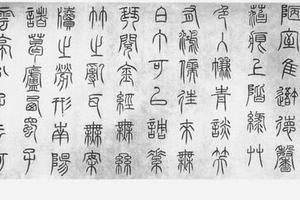 陋室惟吾德馨
苔痕上階綠艸
色入簾青談笑
有鴻儒往來無
白丁可以調素
琴閱金經無絲
竹之亂耳無案
牘之勞形南陽
諸葛廬西蜀子
雲亭孔子云何